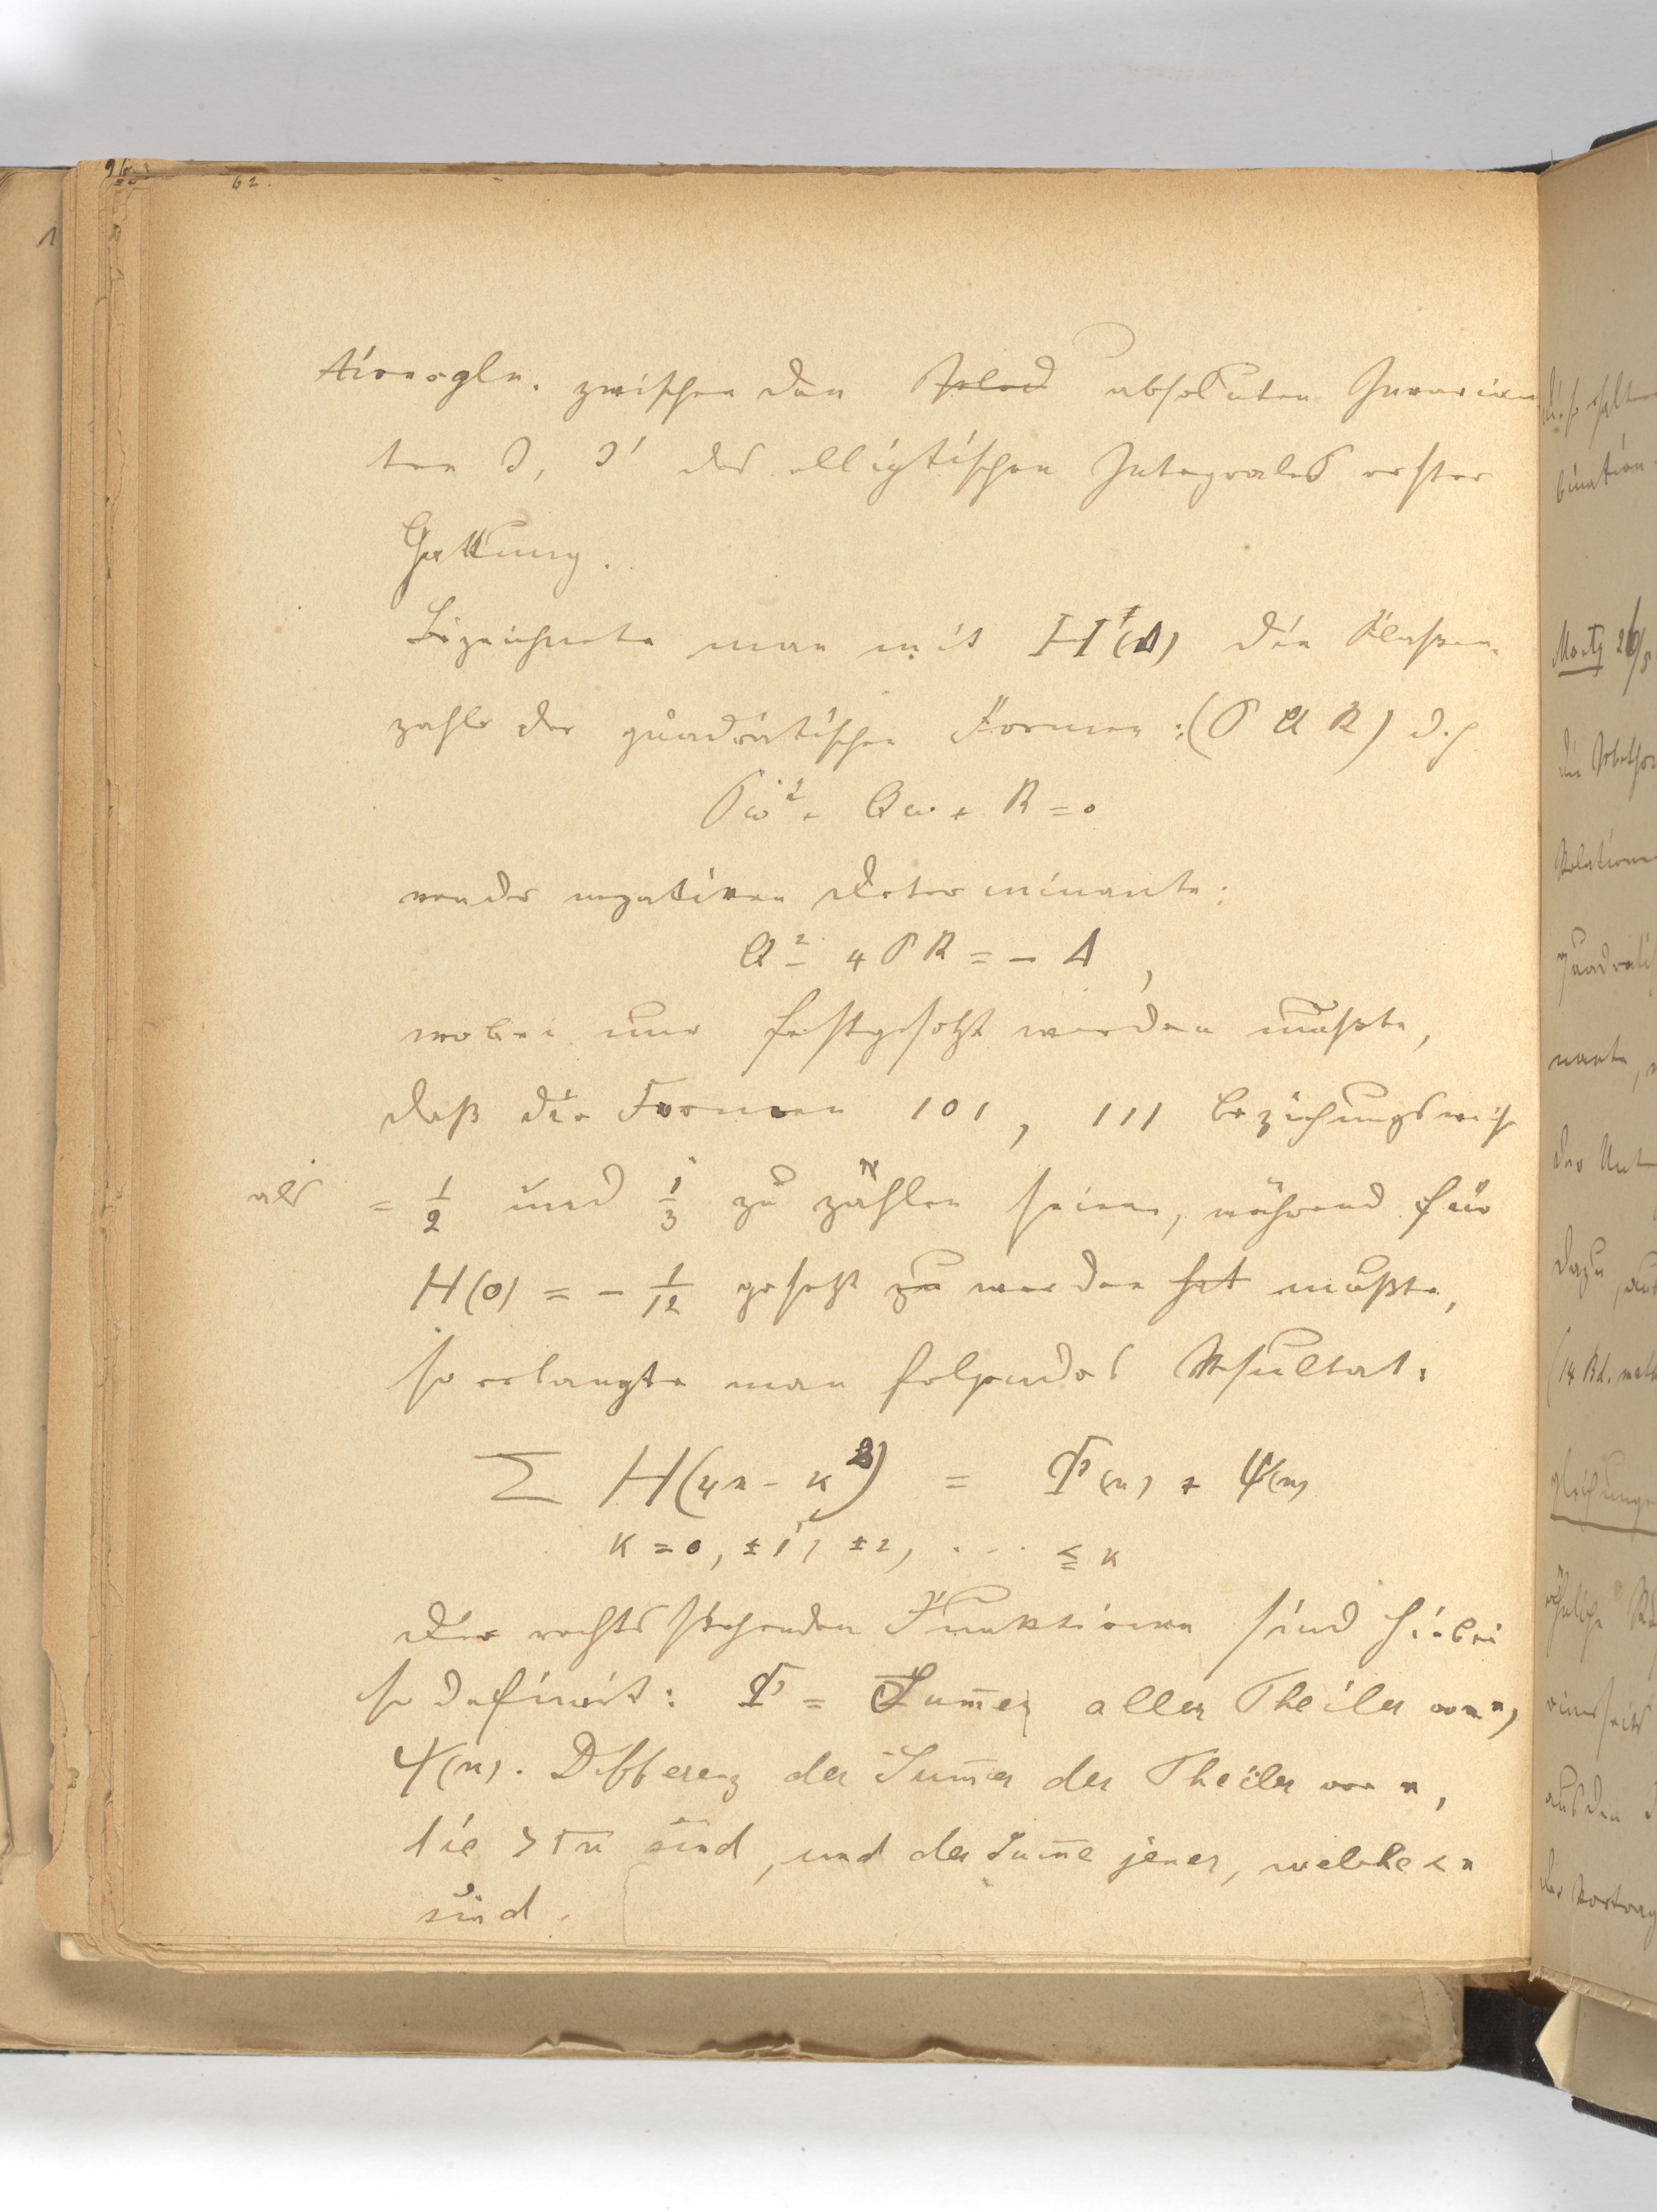 62.
tionsgln. zwischen den absoluten Invarian
ten J, J' des elliptischen Integrales erster
Gattung.
Bezeichnete man mit H(Δ) die Klassen-
zahle der quadratischen Formen: (P Q R) d. h.
Pω² + Qω + R = 0
von der negativen Determinante:
Q² - 4PR = - Δ,
wobei nur festgesetzt werden mußte,
daß die Formen 101, 111 beziehungsweise
als = 1/2 und 1/3 zu zählen seien, während für
H(0) = - 1/12 gesetzt zu werden hat mußte,
so erlangte man folgendes Resultat:
Σ H(4n - κ²) = Φ(n) + Ψ(n)
κ = 0, ±1, ±2, . . . ≦ κ
Die rechts stehenden Funktionen sind hiebei
so definirt: Φ = Sum̅e aller Theiler von n,
Ψ(n). Differenz der Sum̅e der Theiler von n,
die > √n sind, und der Sum̅e jener, welche < n
sind.